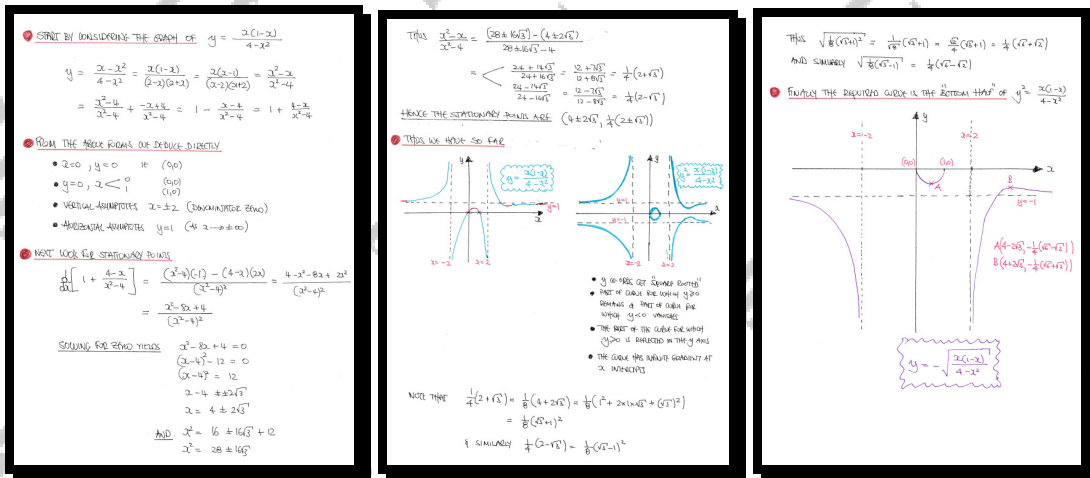 START BY CONSIDERING THE GRAPH OF y = x(1-x)/(4-x²)
y = (x-x²)/(4-x²) = x(1-x)/((2-x)(2+x)) = x(x-1)/((x-2)(x+2)) = (x²-x)/(x²-4)
= (x²-4)/(x²-4) + (-x+4)/(x²-4) = 1 - (x-4)/(x²-4) = 1 + (4-x)/(x²-4)
FROM THE ABOVE FORMS WE DEDUCE DIRECTLY
• x=0, y=0 IE (0,0)
• y=0, x < 0 (0,0)
1 (1,0)
• VERTICAL ASYMPTOTES x=±2 (DENOMINATOR ZERO)
• HORIZONTAL ASYMPTOTES y=1 (AS x→±∞)
NEXT LOOK FOR STATIONARY POINTS
d/dx[1 + (4-x)/(x²-4)] = ((x²-4)(-1) - (4-x)(2x))/(x²-4)² = (4-x²-8x+2x²)/(x²-4)²
= (x²-8x+4)/(x²-4)²
SOLVING FOR ZERO YIELDS x²-8x+4=0
(x-4)²-12=0
(x-4)²=12
x-4 = ±2√3
x = 4±2√3
AND x² = 16 ± 16√3 + 12
x² = 28 ± 16√3
THUS (x²-x)/(x²-4) = ((28±16√3)-(4±2√3))/(28±16√3-4)
= < (24+14√3)/(24+16√3) = (12+7√3)/(12+8√3) = ¼(2+√3)
(24-14√3)/(24-16√3) = (12-7√3)/(12-8√3) = ¼(2-√3)
HENCE THE STATIONARY POINTS ARE (4±2√3, ¼(2±√3))
THUS WE HAVE SO FAR
y = x(1-x)/(4-x²)
y
x
y=1
x=-2
x=2
y² = x(1-x)/(4-x²)
y
x
y=1
y=-1
x=-2
x=2
• y CO-ORDS GET "SQUARE ROOTED"
• PART OF CURVE FOR WHICH y≥0
REMAINS & PART OF CURVE FOR
WHICH y<0 VANISHES
• THE PART OF THE CURVE FOR WHICH
y>0 IS REFLECTED IN THE y AXIS
• THE CURVE HAS INFINITE GRADIENT AT
x INTERCEPTS
NOTE THAT ¼(2+√3) = ⅛(4+2√3) = ⅛(1²+2×1×√3+(√3)²)
= ⅛(√3+1)²
& SIMILARLY ¼(2-√3) = ⅛(√3-1)²
THUS √(⅛(√3+1)²) = 1/√8 (√3+1) = √2/4 (√3+1) = ¼(√6+√2)
AND SIMILARLY √(⅛(√3-1)²) = ¼(√6-√2)
FINALLY THE REQUIRED CURVE IS THE "BOTTOM HALF" OF y² = x(1-x)/(4-x²)
y
x=-2
x=2
(0,0)
(1,0)
x
A
B
y=-1
A(4-2√3, -¼(√6-√2))
B(4+2√3, -¼(√6+√2))
y = -√(x(1-x)/(4-x²))